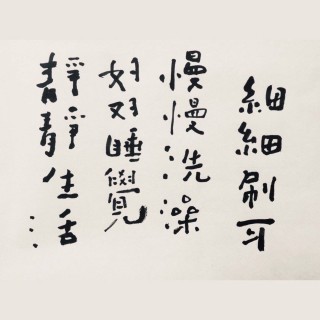 細細刷牙
慢慢洗澡
好好睡覺
靜靜生活...